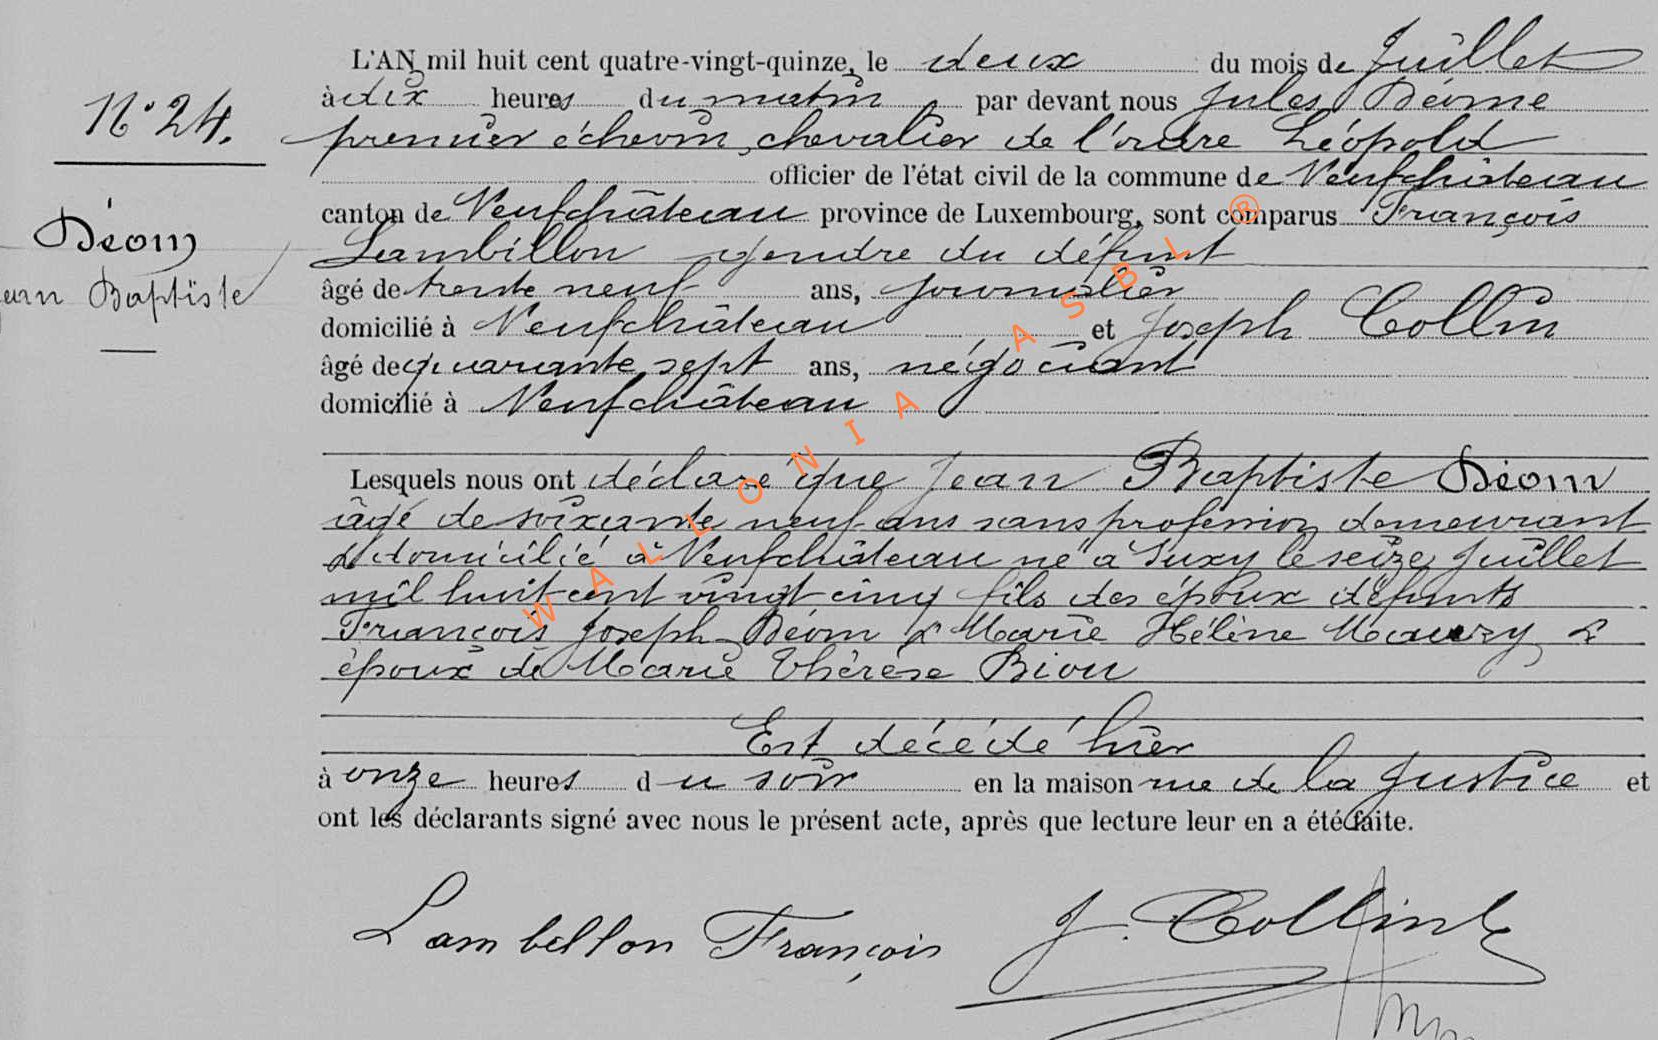 L'AN mil huit cent quatre-vingt-quinze, le deux du mois de Juillet
N° 24.
à dix heures du matin par devant nous Jules Déome
premier échevin, chevalier de l'ordre Léopold
officier de l'état civil de la commune de Neufchâteau
canton de Neufchâteau province de Luxembourg, sont comparus François
Déom
Jean Baptiste
Lambillon gendre du défunt
âgé de trente neuf ans, journalier
domicilié à Neufchâteau et Joseph Collin
âgé de quarante sept ans, négociant
domicilié à Neufchâteau
Lesquels nous ont déclaré que Jean Baptiste Déom
âgé de soixante neuf ans sans profession demeurant
& domicilié à Neufchâteau né à Suxy le seize Juillet
mil huit cent vingt cinq fils des époux défunts
François Joseph Déom & Marie Hélène Mauzy &
époux de Marie Thérèse Biou
Est décédé hier
à onze heures du soir en la maison rue de la Justice et
ont les déclarants signé avec nous le présent acte, après que lecture leur en a été faite.
Lambellon François J. Collin
WALLONIA ASBL ®